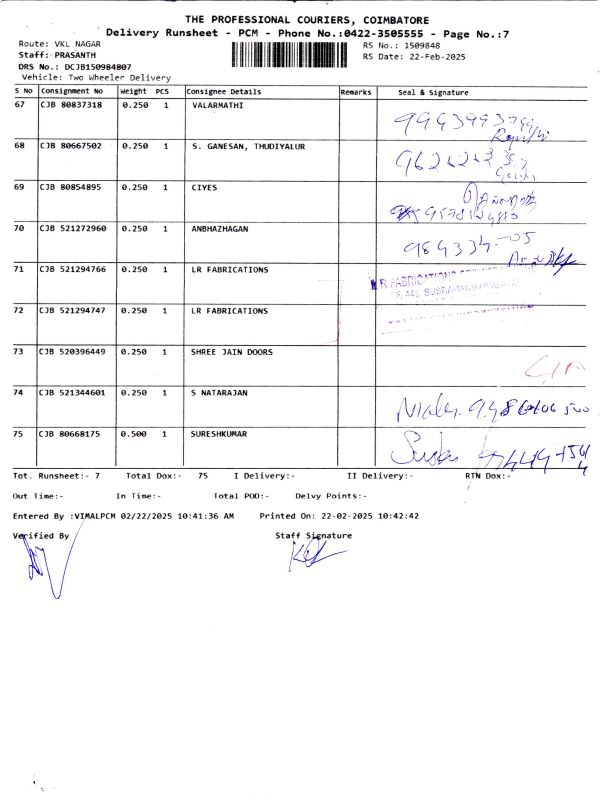 THE PROFESSIONAL COURIERS, COIMBATORE
Delivery Runsheet - PCM - Phone No.:0422-3505555 - Page No.:7
Route: VKL NAGAR
RS No.: 1509848
Staff: PRASANTH
RS Date: 22-Feb-2025
DRS No.: DCJB150984807
Vehicle: Two Wheeler Delivery
S No Consignment No Weight PCS Consignee Details Remarks Seal & Signature
67 CJB 80837318 0.250 1 VALARMATHI
68 CJB 80667502 0.250 1 S. GANESAN, THUDIYALUR
69 CJB 80854895 0.250 1 CIYES
70 CJB 521272960 0.250 1 ANBHAZHAGAN
71 CJB 521294766 0.250 1 LR FABRICATIONS
72 CJB 521294747 0.250 1 LR FABRICATIONS
73 CJB 520396449 0.250 1 SHREE JAIN DOORS
74 CJB 521344601 0.250 1 S NATARAJAN
75 CJB 80668175 0.500 1 SURESHKUMAR
Tot. Runsheet:- 7 Total Dox:- 75 I Delivery:- II Delivery:- RTN Dox:-
Out Time:- In Time:- Total POD:- Delvy Points:-
Entered By :VIMALPCM 02/22/2025 10:41:36 AM Printed On: 22-02-2025 10:42:42
Verified By Staff Signature